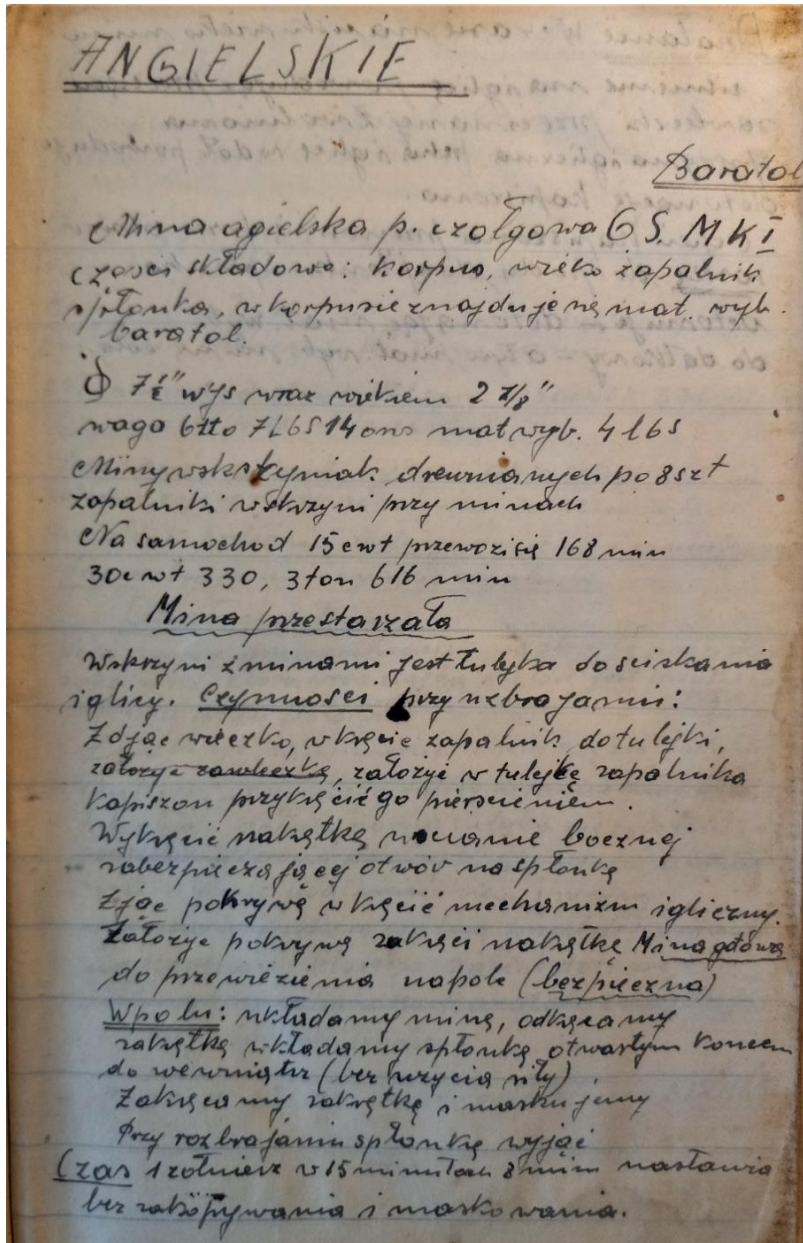 ANGIELSKIE
Baratol
Mina agielska p. czołgowa G S. MK I
części składowe: korpus, wieko zapalnik
spłonka, w korpusie znajduje się mat. wyb.
baratol.
φ 7½" wys wraz wiekiem 2 7/8"
waga btto 7 LBS 14 ons mat wyb. 4 lbs
Miny w skrzyniak drewnianych po 8 szt
zapalniki w skrzyni przy minach
Na samochod 15 cwt przewozi się 168 min
30 cwt 330, 3 ton 616 min
Mina przestarzała
W skrzyni z minami jest tulejka do sciskania
iglicy. Czynności przy uzbrajaniu:
Zdjąc wieczko, wkręcic zapalnik do tulejki,
założyc zawleczkę, założyc w tulejkę zapalnika
Kapiszon przykręcić go pierscieniem.
Wykręcić nakętkę w scianie bocznej
zabezpieczającej otwór na spłonkę
Zjąc pokrywę wkręcić mechanizm igliczny.
Założyc pokrywę zakręci nakętkę Mina gotowa
do przewiezienia na pole (bezpieczna)
W polu: układamy minę, odkęcamy
zakętkę wkładamy spłonkę otwartym koncem
do wewnątrz (bez uzycia siły)
Zakręcamy zakrętkę i maskujemy
Przy rozbrajaniu spłonkę wyjąć
Czas 1 żołnierz w 15 minutach 8 min nastawia
bez zakopywania i maskowania.